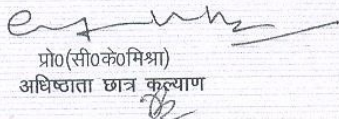 प्रो0(सी0के0मिश्रा)
अधिष्ठाता छात्र कल्याण